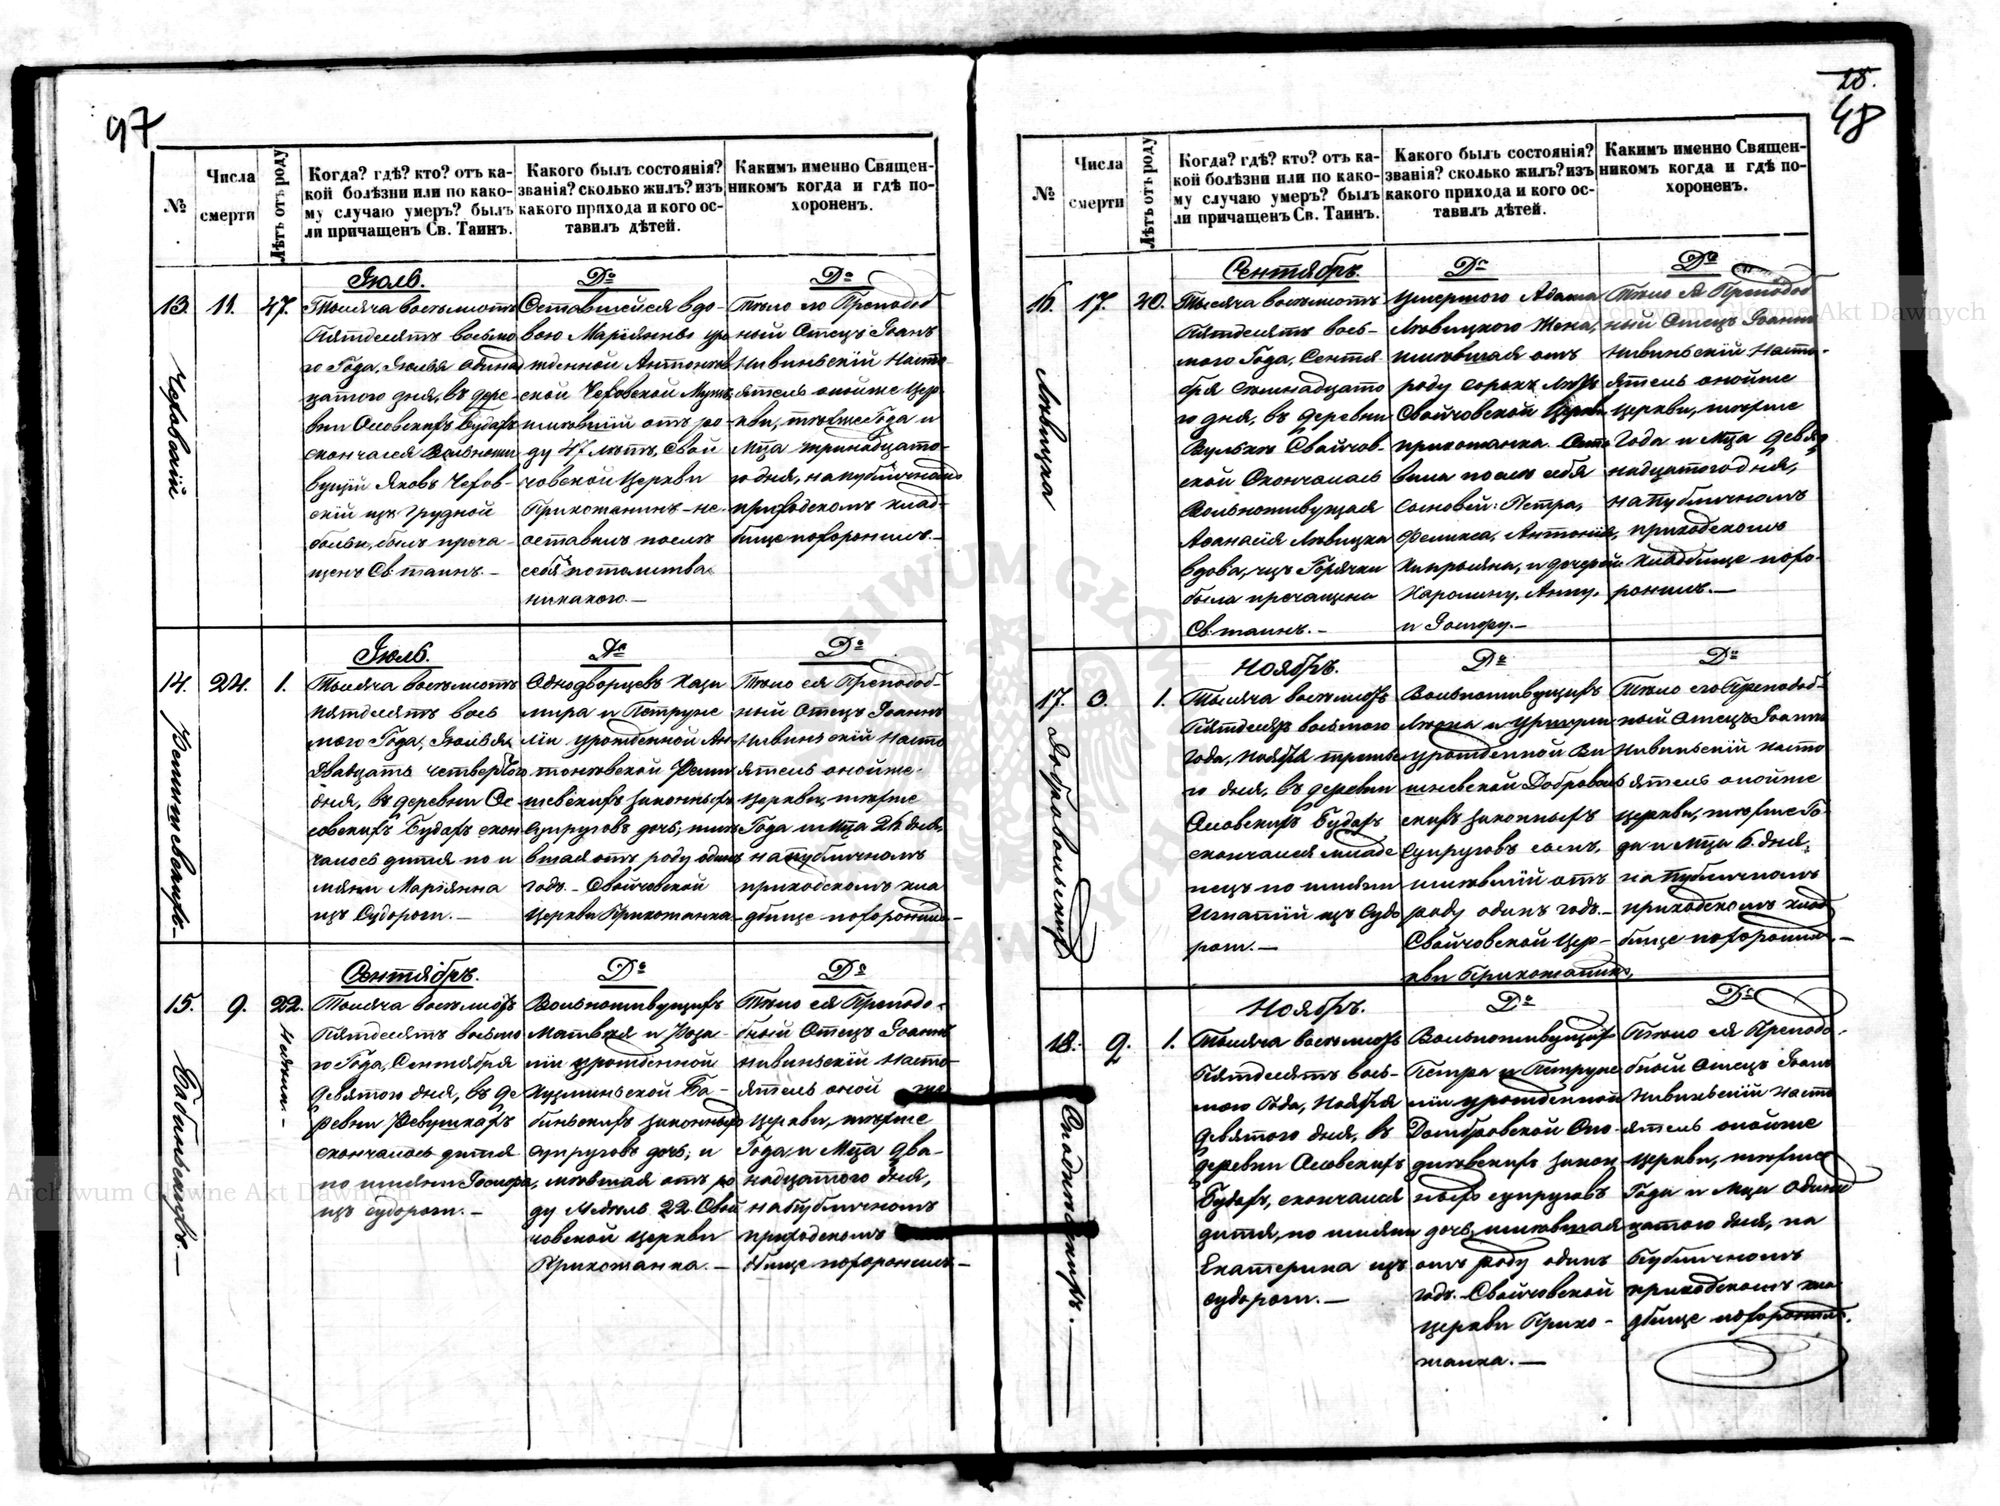 97
№
Числа
смерти
Лѣтъ отъ роду
Когда? гдѣ? кто? отъ ка-
кой болѣзни или по како-
му случаю умеръ? былъ
ли причащенъ Св. Таинъ.
Какого былъ состоянія?
званія? сколько жилъ? изъ
какого прихода и кого ос-
тавилъ дѣтей.
Какимъ именно Священ-
никомъ когда и гдѣ по-
хороненъ.
13.
11.
47.
Чеховскій
Іюль.
Тысяча восемьсотъ
пятдесятъ восьмо
го Года, Іюля одина
цатого дня, въ дере-
вни Осовскихъ Будахъ
скончался Вольножи
вущій Яковъ Чехов-
скій изъ грудной
боли, былъ прича-
щенъ Св. таинъ. -
До
Оставшейся вдо-
вою Маріянны уро
жденной Антонов
ской Чеховской Мужъ,
жившій отъ ро-
ду 47 лѣтъ, Свой
човской Церкви
Прихожанинъ - не
оставилъ послѣ
себя потомства
никакого. -
До
Тѣло его Преподоб
ный Отецъ Іоанъ
Нивиньскій Насто
ятель онойже Цер
кви, тогоже Года и
Мца тринадцато-
го дня, на публичномъ
приходскомъ клад-
бище похоронилъ. -
14.
24.
1.
Іюль.
Тысяча восемьсотъ
пятдесятъ вось
мого Года, Іюля
двадцать четвертого
дня, въ деревни Ос
совскихъ Будахъ скон
чалось дитя по и
мяни Маріянна
изъ Судорги. -
До
Однодворцевъ Кази
мира и Петруне
ліи урожденной Ан
тоновской
законныхъ
супруговъ дочь, жи
вшая отъ роду одинъ
годъ. - Свойчовской
Церкви Прихожанка. -
До
Тѣло ея Преподоб-
ный Отецъ Іоаннъ
Нивиньскій насто
ятель онойже
Церкви, тогоже
Года и Мца 26 дня,
на публичномъ
приходскомъ кла
дбище похоронилъ. -
15.
9.
22.
Недѣли. -
Бабиньскихъ. -
Сентябрь.
Тысяча восемьсотъ
пятдесятъ восьмо
го Года, Сентября
девятого дня, въ де
ревни
скончалось дитя
по имяни
изъ судорги. -
До
Вольноживущихъ
Матвея и Роза-
ліи урожденной
Кузминьской Ба-
биньскихъ законныхъ
супруговъ дочь, и
жившая отъ ро
ду Недѣль 22 Свой
човской Церкви
Прихожанка. -
До
Тѣло ея Преподо-
бный Отецъ Іоаннъ
Нивиньскій насто-
ятель оной же
Церкви, тогоже
Года, и Мца два-
надцатого дня,
на публичномъ
приходскомъ
дбище похоронилъ -
48
№
Числа
смерти
Лѣтъ отъ роду
Когда? гдѣ? кто? отъ ка-
кой болѣзни или по како-
му случаю умеръ? былъ
ли причащенъ Св. Таинъ.
Какого былъ состоянія?
званія? сколько жилъ? изъ
какого прихода и кого ос-
тавилъ дѣтей.
Какимъ именно Священ-
никомъ когда и гдѣ по-
хороненъ.
16.
17.
40.
Сентябрь.
Тысяча восемьсотъ
пятдесятъ вось-
мого Года, Сентя
бря семнадцато
го дня, въ деревни
Свойчов-
ской Скончалась
Вольноживущая
вдова, изъ Горячки
была причащена
Св. таинъ. -
До
Умершого Адама
Жена,
жившая отъ
роду сорокъ лѣтъ
Свойчовской Церкви
прихожанка. Оста
вила послѣ себя
Сыновей: Петра,
Феликса, Антонія,
и дочерей
Каролину, Анну,
и
До
Тѣло ея Преподоб
ный Отецъ Іоаннъ
Нивиньскій Насто-
ятель онойже
Церкви, тогоже
Года и Мца девят
надцатого дня,
на публичномъ
приходскомъ
кладбище похо-
ронилъ. -
17.
3.
1.
Добровольскихъ
Ноябрь.
Тысяча восемьсотъ
Пятдесятъ восьмого
года, Ноября третье
го дня, въ деревни
Осовскихъ Будахъ
скончался младе
нецъ по имяни
Игнатій изъ Судо
рги. -
До
Вольноживущихъ
урожденной Ви
шневской Добровол
скихъ законныхъ
супруговъ сынъ,
жившій отъ
роду одинъ годъ. -
Свойчовской Цер-
кви Прихожанинъ.
До
Тѣло его Преподоб-
ный Отецъ Іоаннъ
Нивиньскій насто
ятель онойже
Церкви, тогоже Го-
да и Мца 6. дня,
на публичномъ
приходскомъ клад
бище похоронилъ. -
18.
9.
1.
Ноябрь.
Тысяча восемьсотъ
Пятдесятъ вось-
мого Года, Ноября
девятого дня, въ
деревни Осовскихъ
Будахъ, скончался
дитя, по имяни
Екатерина изъ
судорги. -
До
Вольноживущихъ
Петра и Петруне
ліи урожденной
Домбровской
закон
ныхъ супруговъ
дочь, жившая
отъ роду одинъ
годъ. Свойчовской
Церкви Прихо-
жанка. -
До
Тѣло ея Преподо-
бный Отецъ Іоаннъ
Нивиньскій насто
ятель онойже
Церкви, тогоже
Года и Мца одина
цатого дня, на
Публичномъ
приходскомъ кла
дбище похоронилъ.
ARCHIWUM GŁÓWNE AKT DAWNYCH
Archiwum Główne Akt Dawnych
Archiwum Główne Akt Dawnych